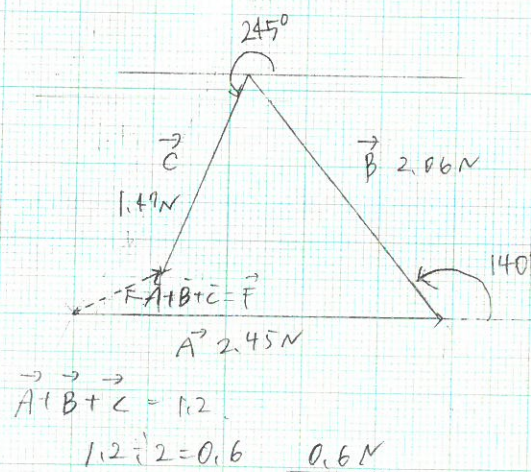 245°
C⃗
B⃗ 2.06N
1.47N
140°
A⃗+B⃗+C⃗=F⃗
A⃗ 2.45N
A⃗+B⃗+C⃗ = 1.2
1.2÷2=0.6 0.6N